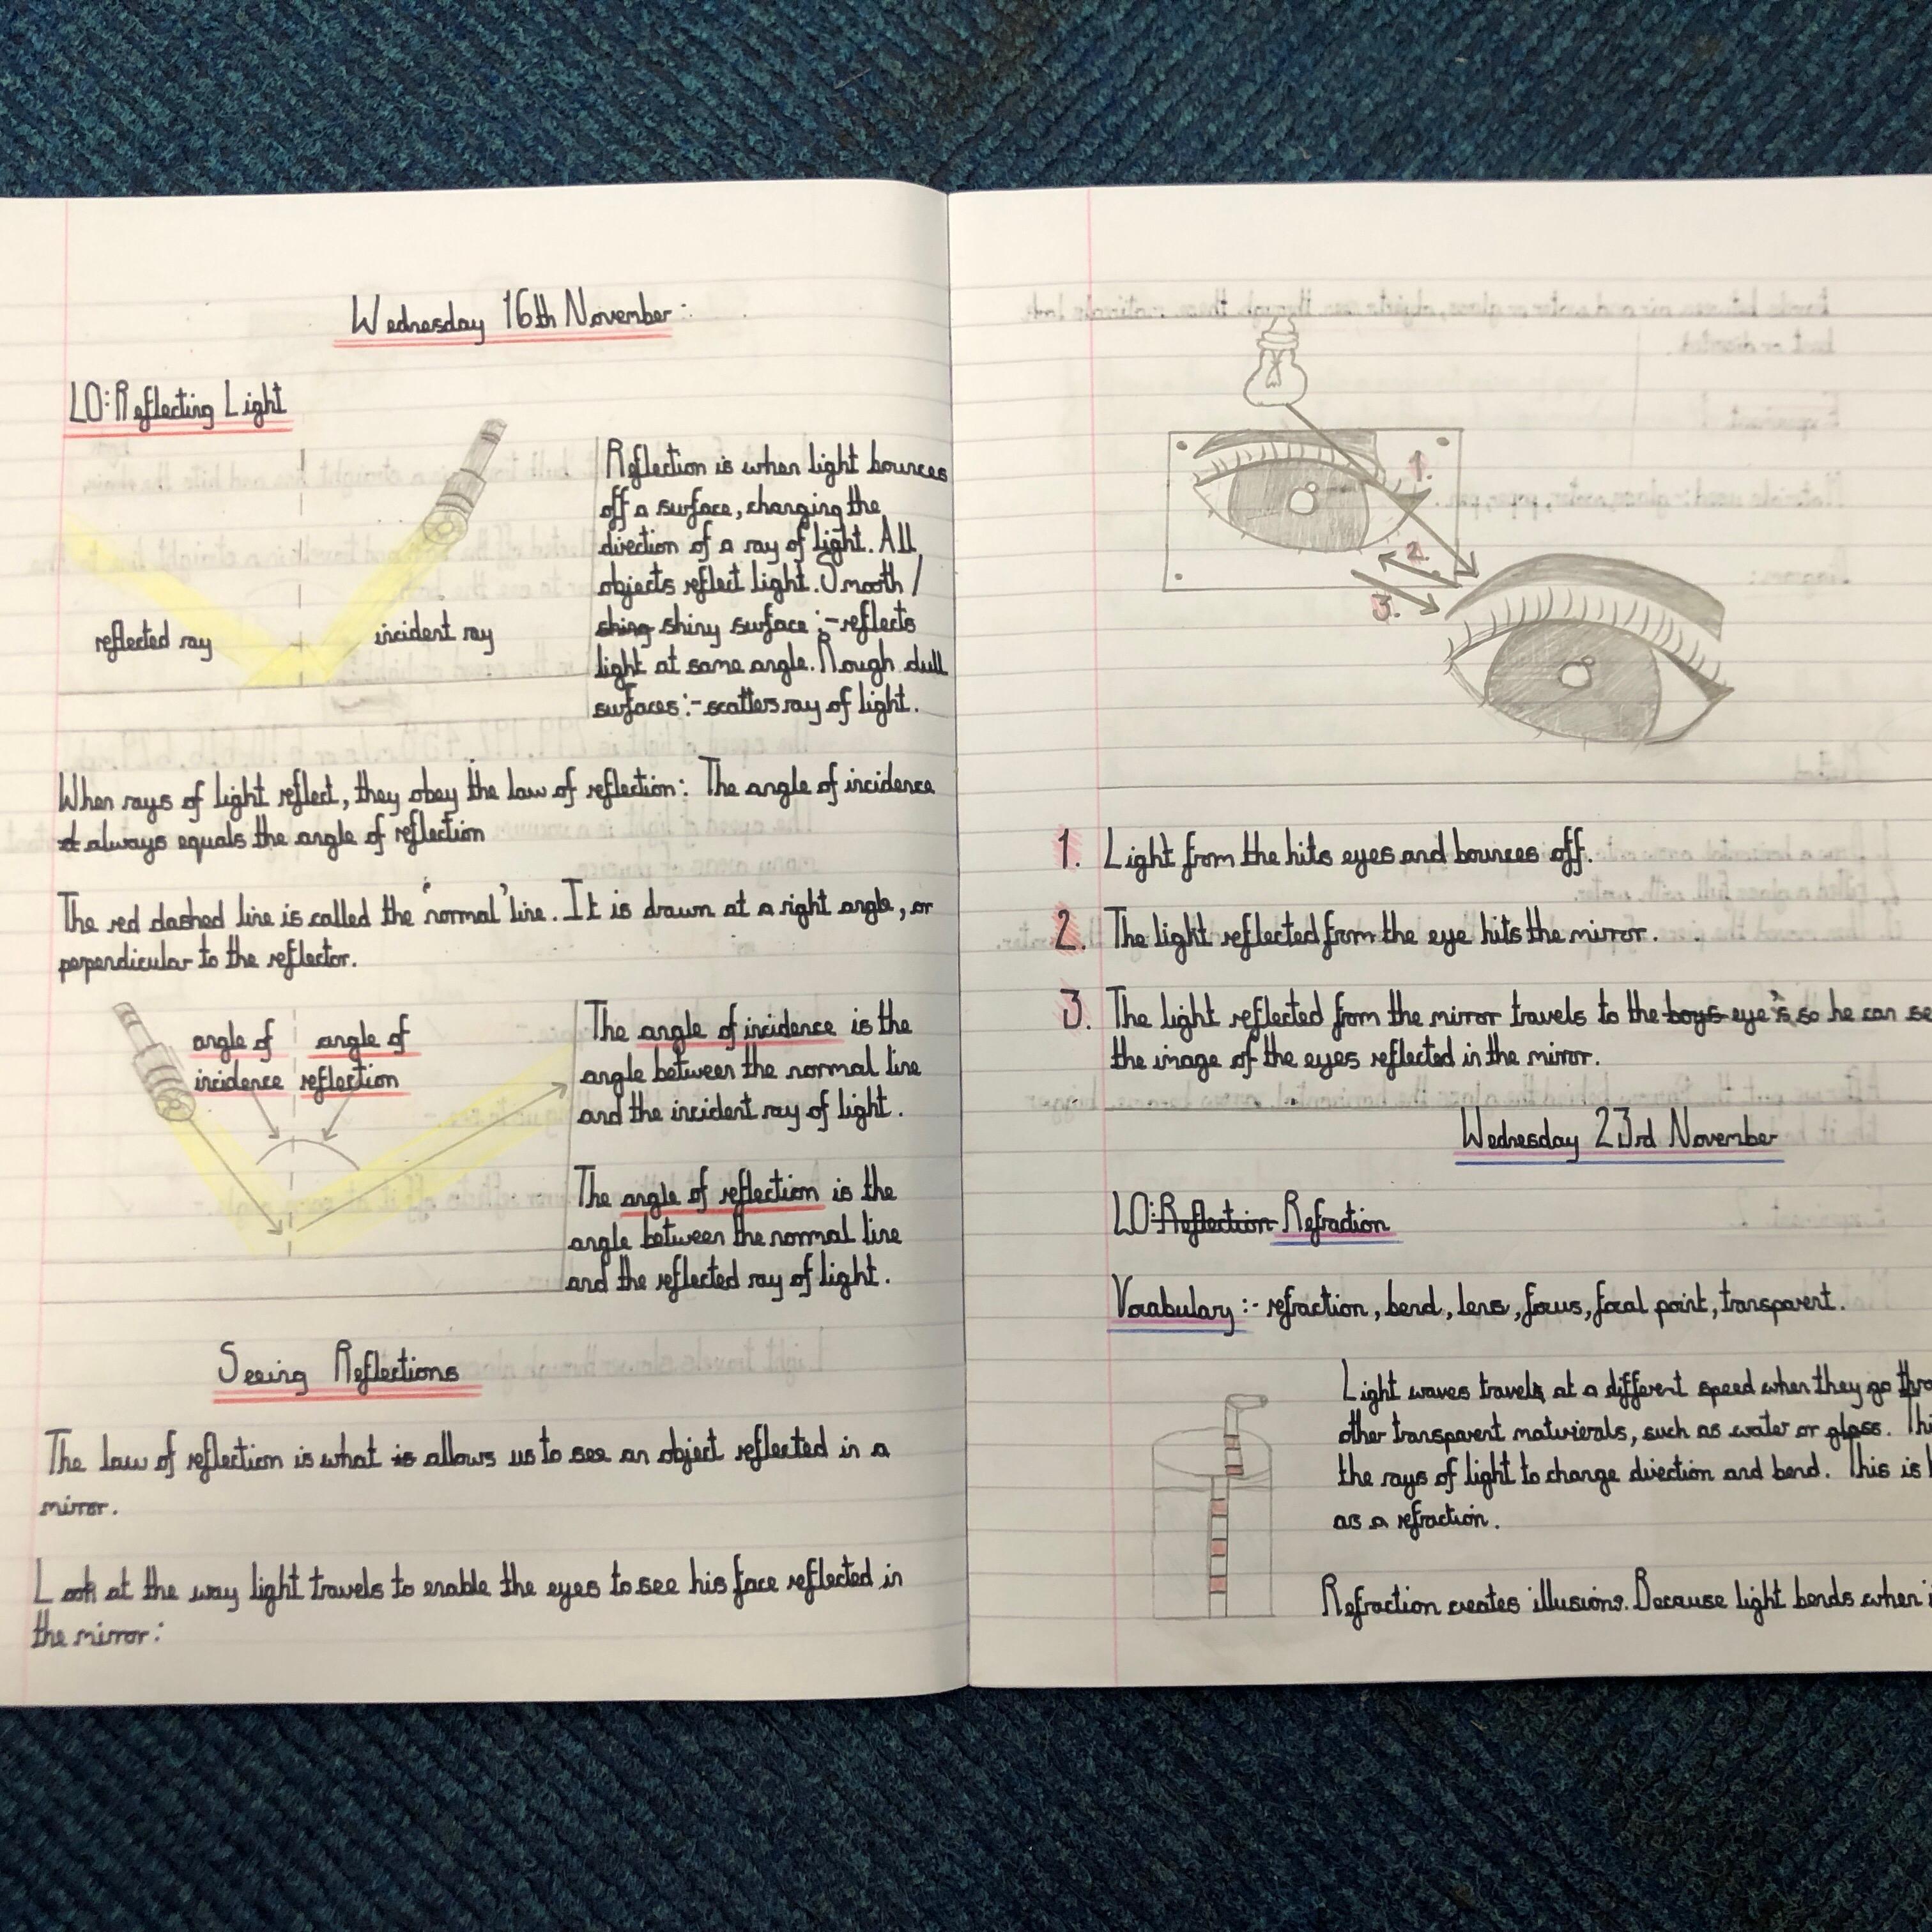 Wednesday 16th November:
LO: Reflecting Light
reflected ray
incident ray
Reflection is when light bounces
off a surface, changing the
direction of a ray of light. All
objects reflect light. Smooth /
shing shiny surface :- reflects
light at same angle. Rough dull
surfaces :- scatters ray of light.
When rays of light reflect, they obey the law of reflection: The angle of incidence
always equals the angle of reflection
The red dashed line is called the "normal" line. It is drawn at a right angle, or
perpendicular to the reflector.
angle of
incidence
angle of
reflection
The angle of incidence is the
angle between the normal line
and the incident ray of light.
The angle of reflection is the
angle between the normal line
and the reflected ray of light.
Seeing Reflections
The law of reflection is what is allows us to see an object reflected in a
mirror.
Look at the way light travels to enable the eyes to see his face reflected in
the mirror:
1.
2.
3.
1. Light from the hits eyes and bounces off.
2. The light reflected from the eye hits the mirror.
3. The light reflected from the mirror travels to the boys eye's so he can se
the image of the eyes reflected in the mirror.
Wednesday 23rd November
LO: Reflection Refraction
Vocabulary :- refraction, bend, lens, focus, focal point, transparent.
Light waves travels at a different speed when they go thro
other transparent matuierals, such as water or glass. Thi
the rays of light to change direction and bend. This is
as a refraction.
Refraction creates illusions. Because light bends when